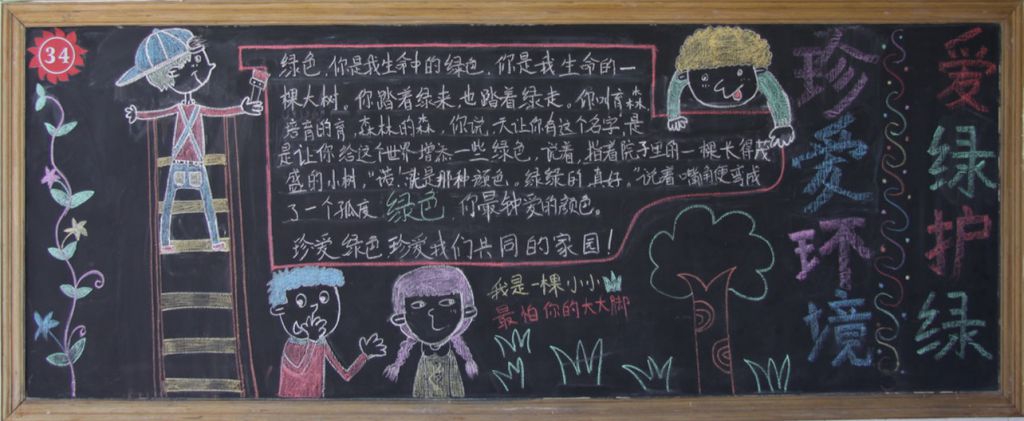 34
绿色,你是我生命中的绿色,你是我生命的一
棵大树。你踏着绿来,也踏着绿走。你叫育森
培育的育,森林的森,你说,天让你有这个名字,是
是让你给这个世界增添一些绿色,说着,指着院子里的一棵长得茂
盛的小树,"诺!就是那种颜色。绿绿的真好。"说着嘴角便弯成
了一个弧度 绿色 你最钟爱的颜色。
珍爱绿色 珍爱我们共同的家园!
我是一棵小小
最怕你的大大脚
珍爱环境
爱绿护绿